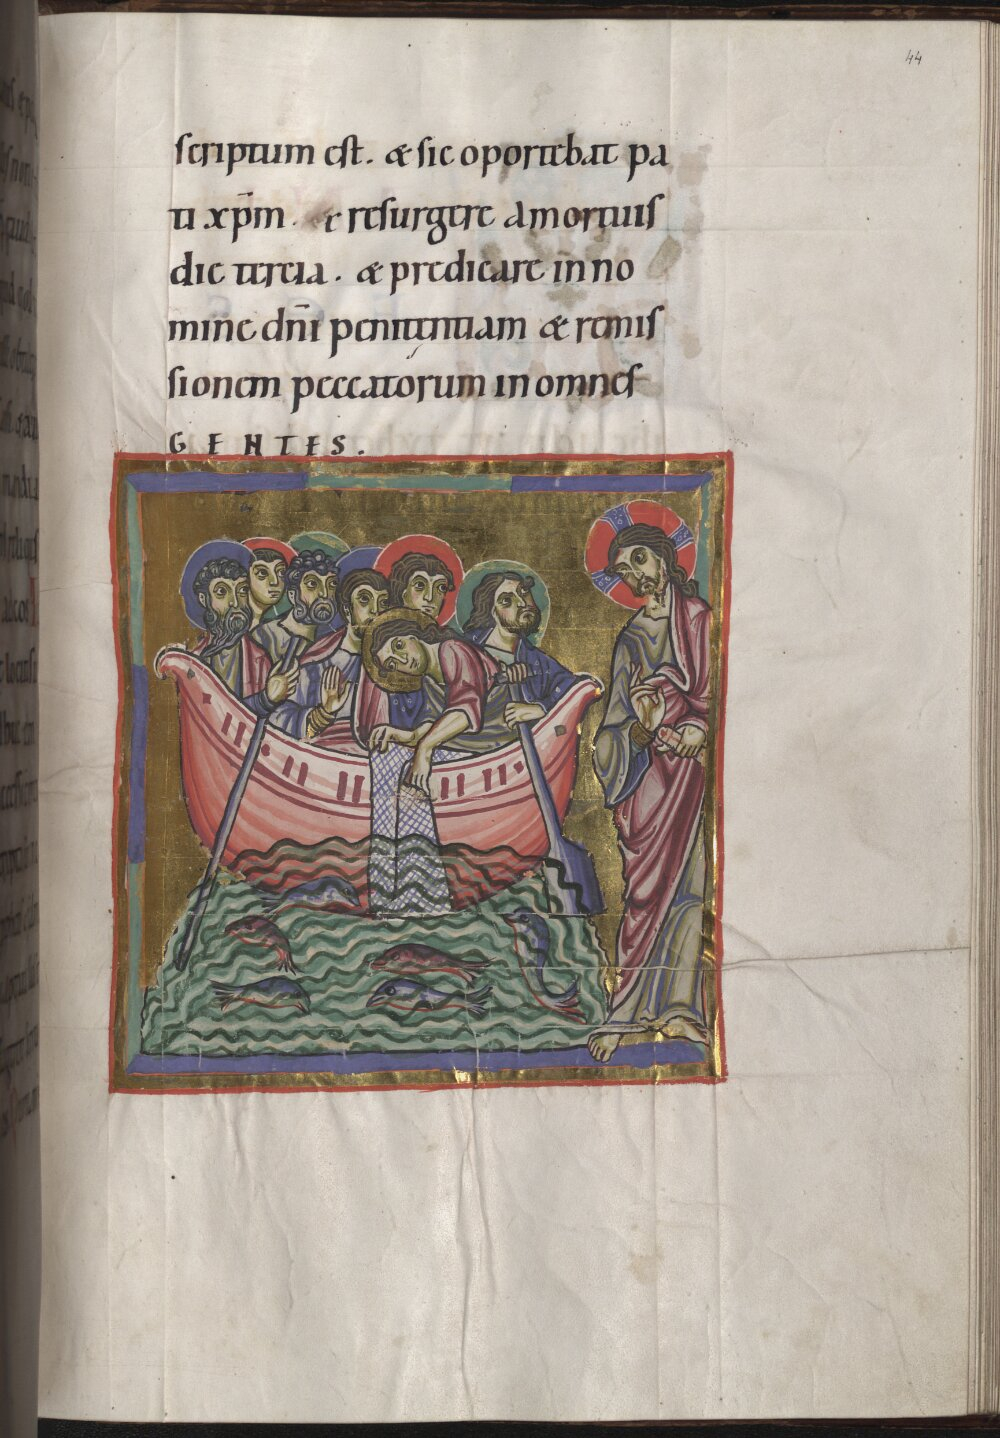 44
scriptum est. & sic oportebat pa
ti xp̄m. & resurgere a mortuis
die tercia. & predicare in no
mine dn̄i penitentiam & remis
sionem peccatorum in omnes
GENTES.